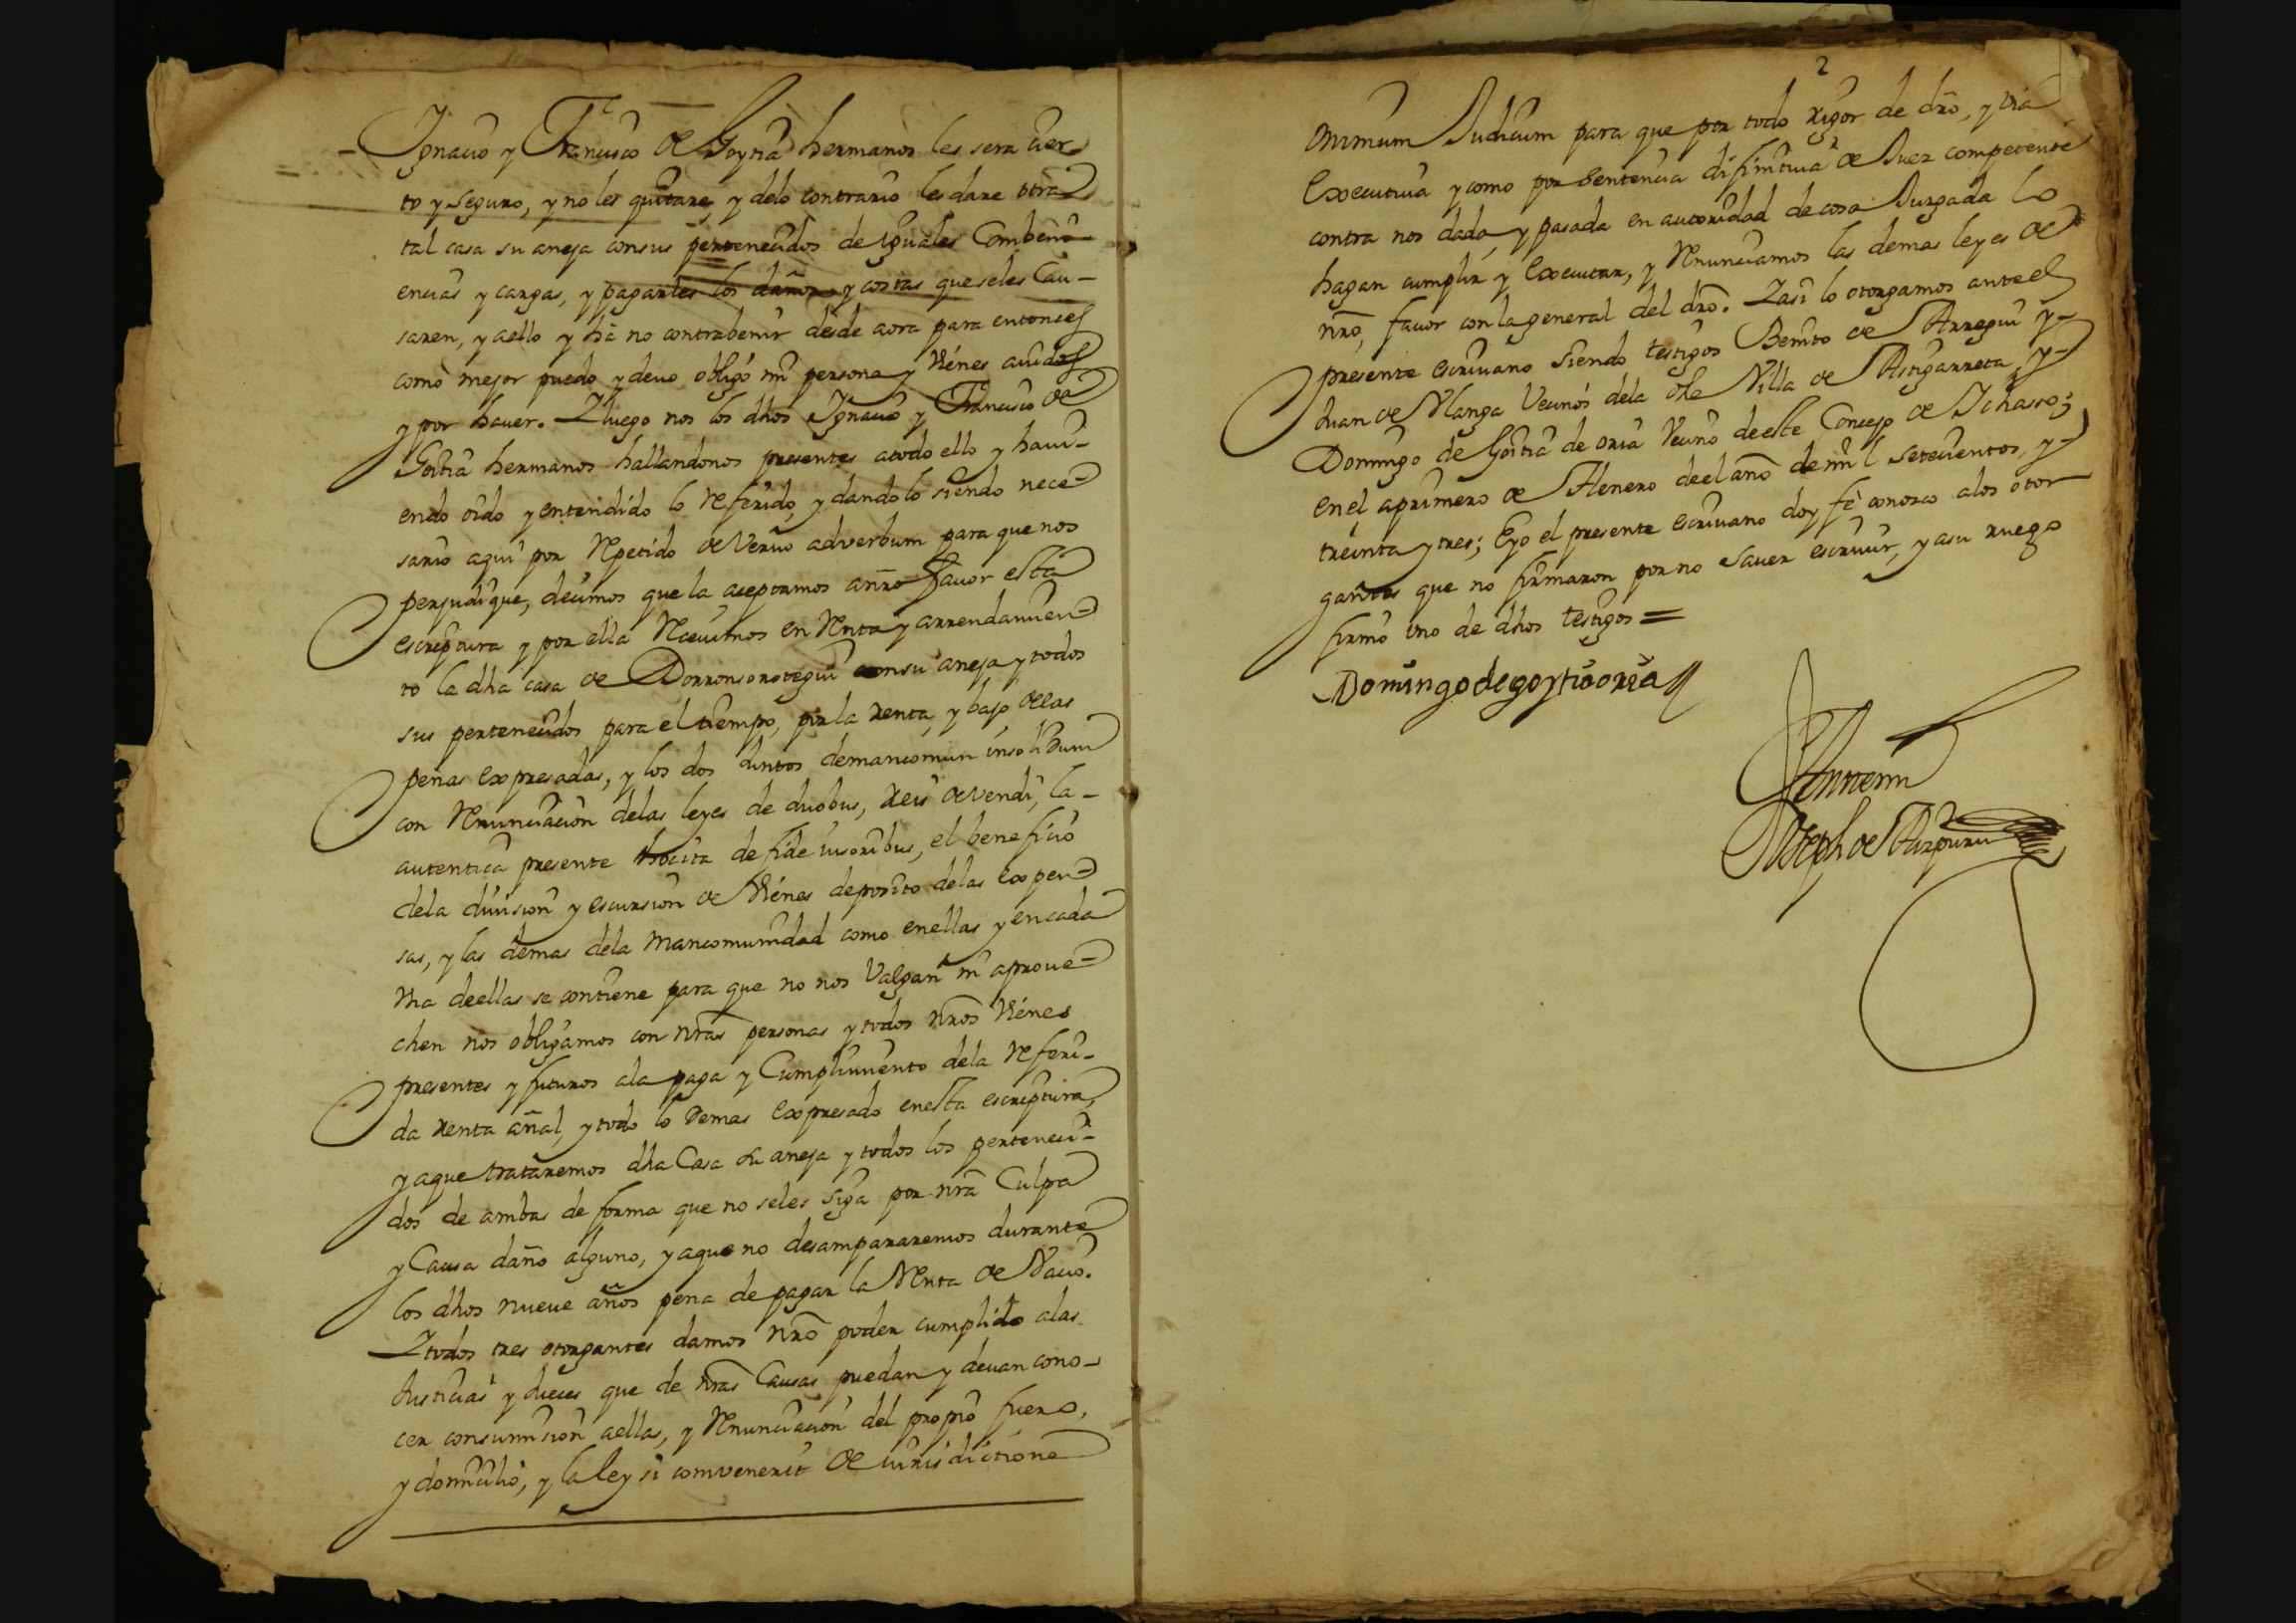 Ignacio y Franco. de Goytia hermanos les sera cier
to y seguro, y no les quitare, y delo contrario les dare otra
tal casa su aneja consus pertenecidos de iguales Combeni
encias y cargas, y pagarles los daños y costas que seles Cau-
saren, y aello y hà no contrabenir desde aora para entonces
como mejor puedo y devo obligo mi persona y Vienes avidos
y por haver. Y luego nos los dhos Ignacio y Francisco de
Goitia hermanos hallandonos presentes atodo ello y havi-
endo oido y entendido lo referido, y dandolo siendo nece-
sario aqui por repetido de Vervo adverbum para que nos
perjudique, decimos que la aceptamos anro favor esta
escriptura y por ella recivimos en renta y arrendamien-
to la dha casa de Dorronsorotegui consu aneja y todos
sus pertenecidos para el tiempo, por la renta, y bajo delas
penas expresadas, y los dos Juntos demancomun insolidum
con renunciacion delas leyes de duobus, reis devendi, la-
autentica presente hocita de fide iusoribus, el beneficio
dela division y escursion de Vienes deposito delas expen-
sas, y las demas dela mancomunidad como enellas y encada
Vna deellas se contiene para que no nos Valgan ni aprove-
chen nos obligamos con nras personas y todos nros Vienes
presentes y futuros ala paga y Cumplimiento dela referi-
da renta añal, y todo lo demas expresado enesta escriptura,
y aque trataremos dha Casa su aneja y todos los perteneci-
dos de ambas de forma que no seles siga por nra Culpa
y Causa daño alguno, y aque no desampararemos durante
los dhos nueve años pena de pagar la renta de Vacio.
Y todos tres otorgantes damos nro poder cumplido alas
Justicias y Jueces que de nras Causas puedan y devan cono-
cer consumision aellas, y renunciacion del propio fuero,
y domicilio, y la ley si comvenerit de iurisdictione
2
omnium Judicum para que por todo rigor de dro, y via
executiva y como por sentencia difinitiva de Juez competente
contra nos dada, y pasada en autoridad de cosa Juzgada lo
hagan cumplir y executar, y renunciamos las demas leyes de
nro, favor con la general del dro. Y asi lo otorgamos ante el
presente escrivano siendo testigos Benito de Arregui y-
Juan de Vlanga Vecinos dela dha Villa de Astigarreta, y-
Domingo de Goitia de oria Vecino deeste Concejo de Ichasso;
en el aprimero de Henero deel año de mil setecientos, y-
treinta y tres; Eyo el presente escrivano doy fè conozco alos otor
gantes que no firmaron por no saver escrivir, y asu ruego
firmò uno de dhos testigos =
Domingo de goytia oria
Antemi
Joseph de Aizpuru